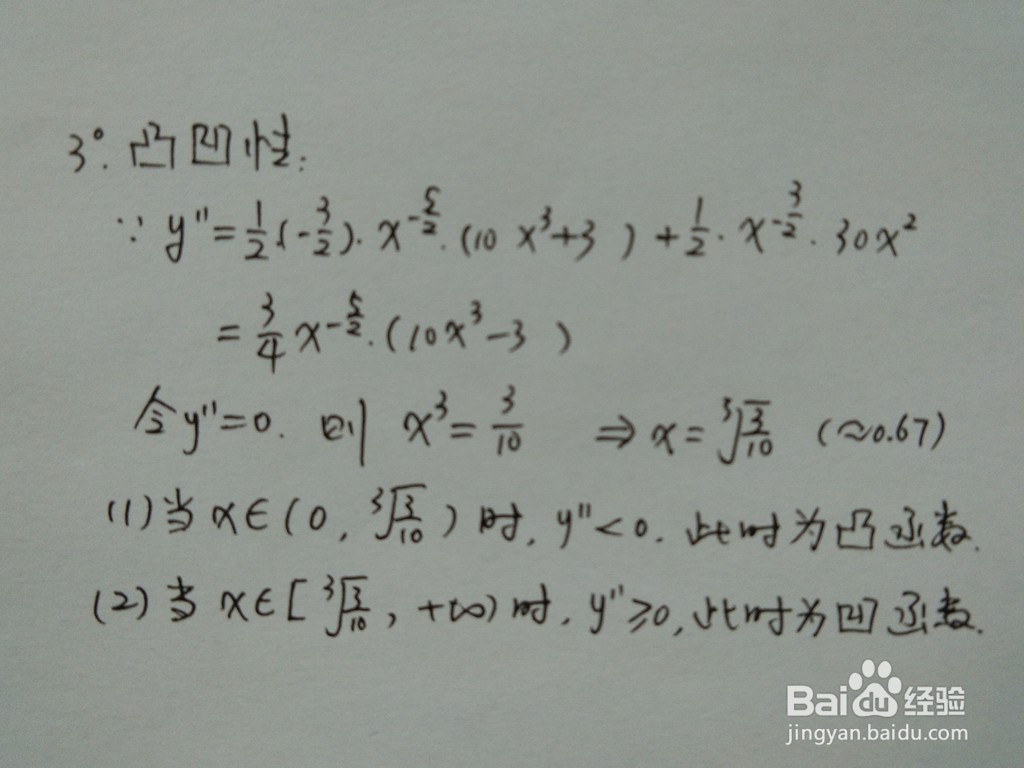 3°. 凸凹性:
∵ y''=1/2(-3/2)·x^(-5/2)·(10x³+3)+1/2·x^(-3/2)·30x²
=3/4x^(-5/2)·(10x³-3)
令y''=0. 则 x³=3/10 ⇒ x=∛(3/10) (≈0.67)
(1)当x∈(0,∛(3/10))时, y''<0. 此时为凸函数.
(2)当x∈[∛(3/10),+∞)时, y''≥0,此时为凹函数.
Bai 经验
jingyan.baidu.com